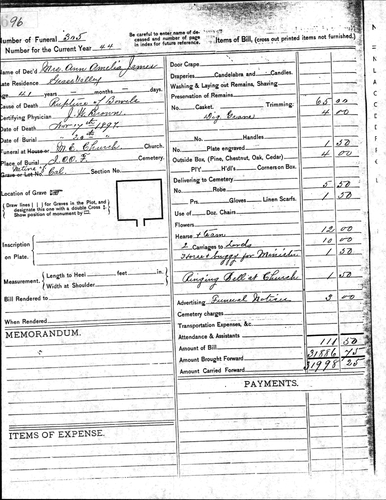 96
Number of Funeral 305
Number for the Current Year 44
Be careful to enter name of deceased and number of page in index for future reference.
Items of Bill, (cross out printed items not furnished.)
Name of Dec'd Mrs. Ann Amelia James
Late Residence Grass Valley
Age 41 years - months - days.
Cause of Death Rupture of Bowels
Certifying Physician J. H. Brown
Date of Death Nov 17th 1897.
Date of Burial " 20th "
Funeral at House or M. E. Church
Place of Burial I.O.O.F. Cemetery.
Native of Cal. Section No
Location of Grave
Draw lines for Graves in the Plot, and designate this one with a double Cross
Show position of monument by
Inscription on Plate.
Measurement. Length to Heel feet in.
Width at Shoulder
Bill Rendered to
When Rendered
MEMORANDUM.
ITEMS OF EXPENSE.
Door Crape
Draperies Candelabra and Candles.
Washing & Laying out Remains, Shaving
Preservation of Remains
No. Casket. Trimming. 65 00
Dig Grave 4 00
No. Handles
No. Plate engraved 1 50
Outside Box, (Pine, Chestnut, Oak, Cedar) 4 00
P'l'y H'dl's Corners on Box.
Delivering to Cemetery
No. Robe 5 50
Prs. Gloves Linen Scarfs. 1 50
Use of Doz. Chairs
Flowers
Hearse & Team 12 00
2 Carriages to Lords 10 00
Horse & buggy for Minister 1 50
Ringing Bell at Church 1 50
Advertising Funeral Notices 3 00
Cemetery charges
Transportation Expenses, &c.
Attendance & Assistants
Amount of Bill 111 50
Amount Brought Forward 31886 75
Amount Carried Forward 31998 25
PAYMENTS.